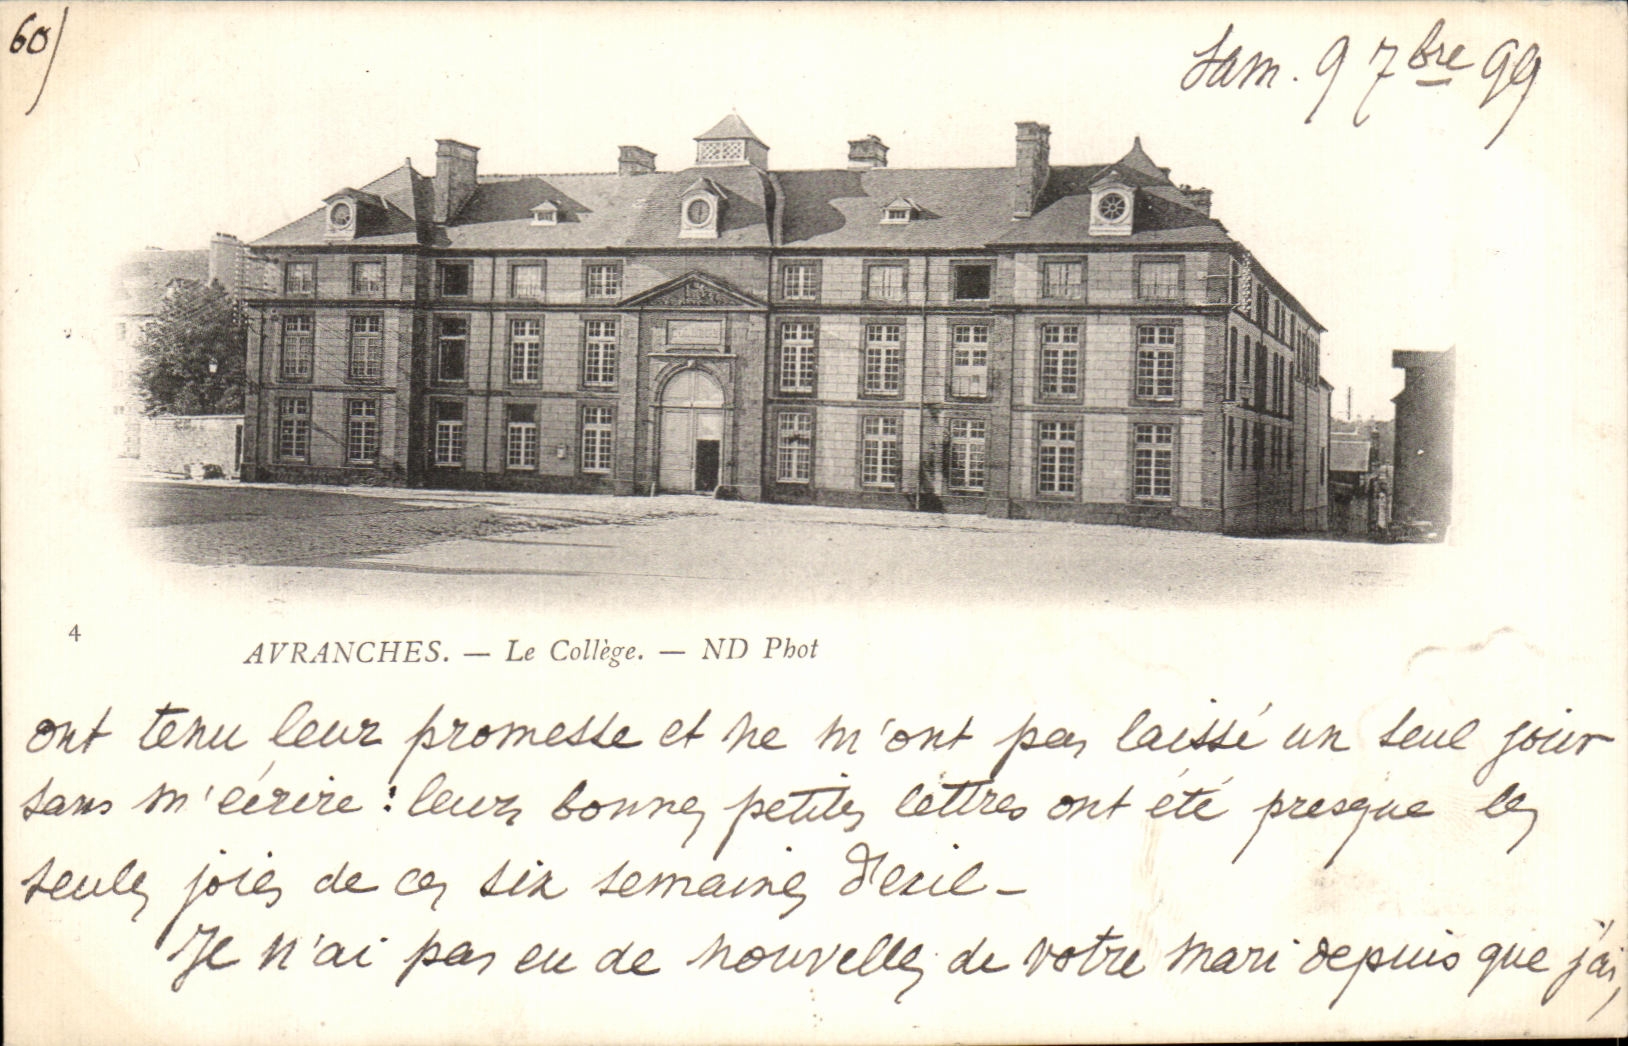 60)
Sam. 9 7bre 99
4
AVRANCHES. — Le Collège. — ND Phot
ont tenu leur promesse et ne m'ont pas laissé un seul jour
sans m'écrire : leurs bonnes petites lettres ont été presque les
seules joies de ces six semaines d'exil —
Je n'ai pas eu de nouvelles de votre mari depuis que j'ai,